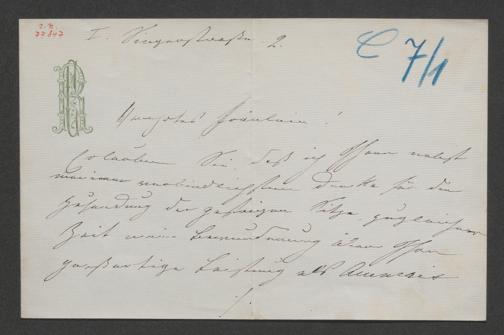 I. N.
77847
I. Singerstraße. 2.
C 7/1
R
Fräulein!
Erlauben Sie, daß ich Ihnen nebst
meinem verbindlichsten Danke für die
Zusendung der gestrigen Sitze zugleicher
Zeit meine Bewunderung über Ihre
großartige Leistung als Amneris
./.